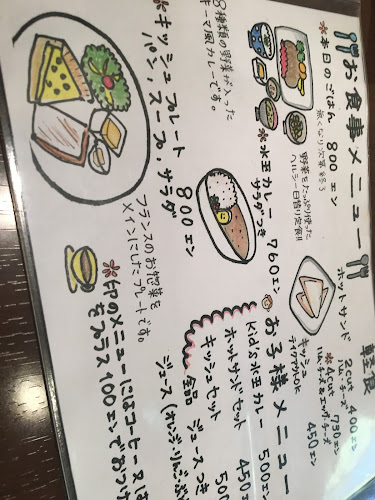 お食事メニュー
*本日のごはん 800エン
無くなり次第終了
野菜をたっぷり使った
ヘルシー日替り定食!!
*水王カレー 760エン
サラダつき
8種類の野菜が入った
キーマ風カレーです。
*キッシュプレート 800エン
パン、スープ、サラダ
フランスのお惣菜を
メインにしたプレートです。
*印のメニューにはコーヒー又は
をプラス100エンでおつけ
軽食
ホットサンド
2cut 400エン
ハムとチーズ
*4cut 730エン
ハムとチーズ&エッグとチーズ
キッシュ 450エン
テイクアウトOK
お子様メニュー
Kid's水王カレー 500エン
ホットサンドセット 450
キッシュセット 50
全品 ジュースつき
ジュース(オレンジ、りんご、ぶ